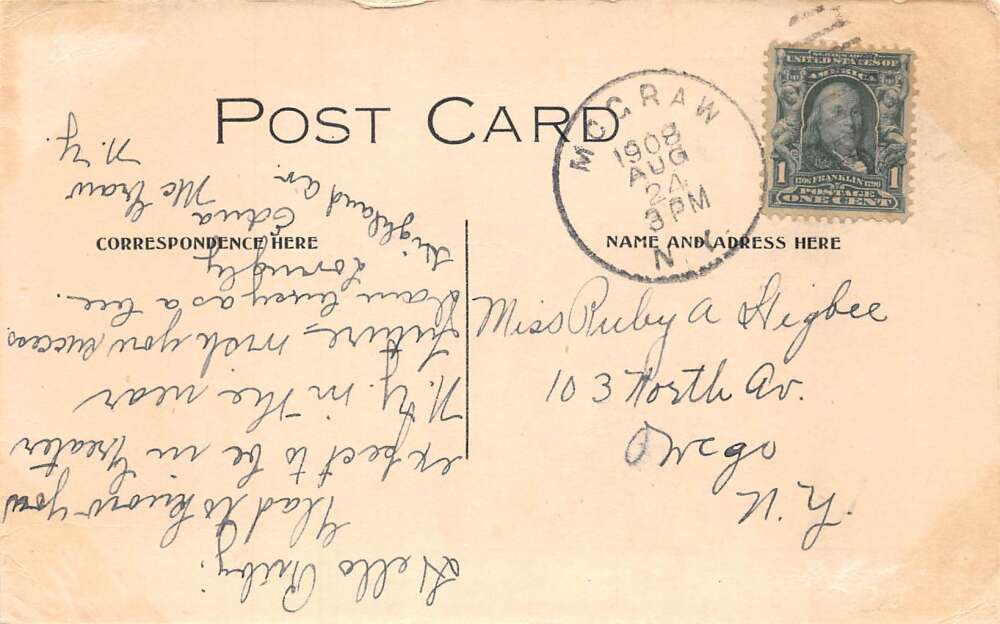 POST CARD
McGRAW
1908
AUG
24
3 PM
N.Y.
SERIES 1902
UNITED STATES OF
AMERICA
1706 FRANKLIN 1790
1 POSTAGE 1
ONE CENT
CORRESPONDENCE HERE
NAME AND ADRESS HERE
Miss Ruby A Higbee
103 North Av.
Owego
N.Y.
Hello Ruby.
Glad to know you
expect to be in Greater
N.Y. in the near
future, wish you success
I am busy as a bee.
Lovingly
Edna
Highland Av.
Mc Graw
N.Y.